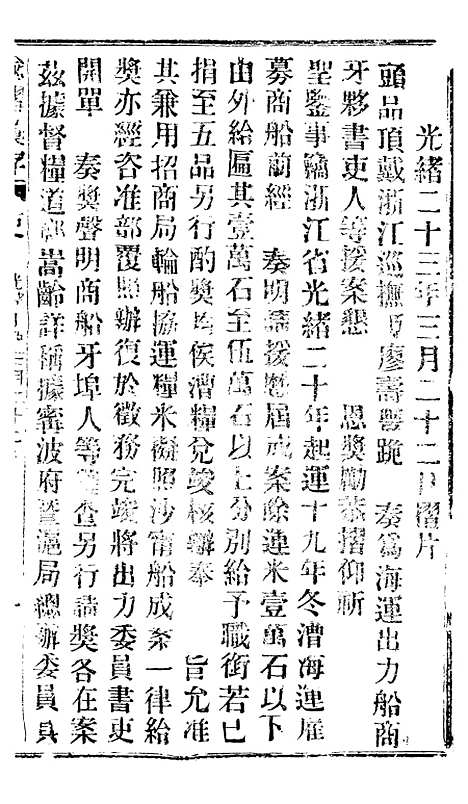 光緒二十三年三月二十二日摺片
頭品頂戴浙江巡撫廖壽豐跪　奏爲海運出力船商
牙夥書吏人等援案懇　恩奬勵恭摺仰祈
聖鑒事竊浙江省光緒二十年起運十九年冬漕海運雇
募商船前經　奏明請援歷屆成案餘運米壹萬石以下
由外給匾其壹萬石至伍萬石以上分別給予職銜若已
捐至五品另行酌奬均俟漕糧兌竣核辦奉　旨允准
其兼用招商局輪船協運糧米礙照沙甯船成案一律給
奬亦經咨准部覆照辦復於徵務完竣將出力委員書吏
開單　奏奬聲明商船牙埠人等查另行請奬各在案
茲據督糧道嵩齡詳稱據寗波府暨滬局總辦委員具